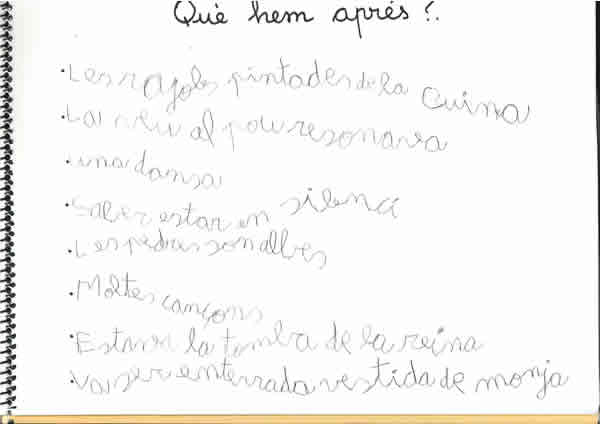 Què hem aprés?.
·Les rajoles pintades de la cuina
·La veu al pou resonava
·una dansa
·Saber estar en silenci
·Les pedres son albes
·Moltes cançons
·Estava la tomba de la reina
·Va ser enterrada vestida de monja